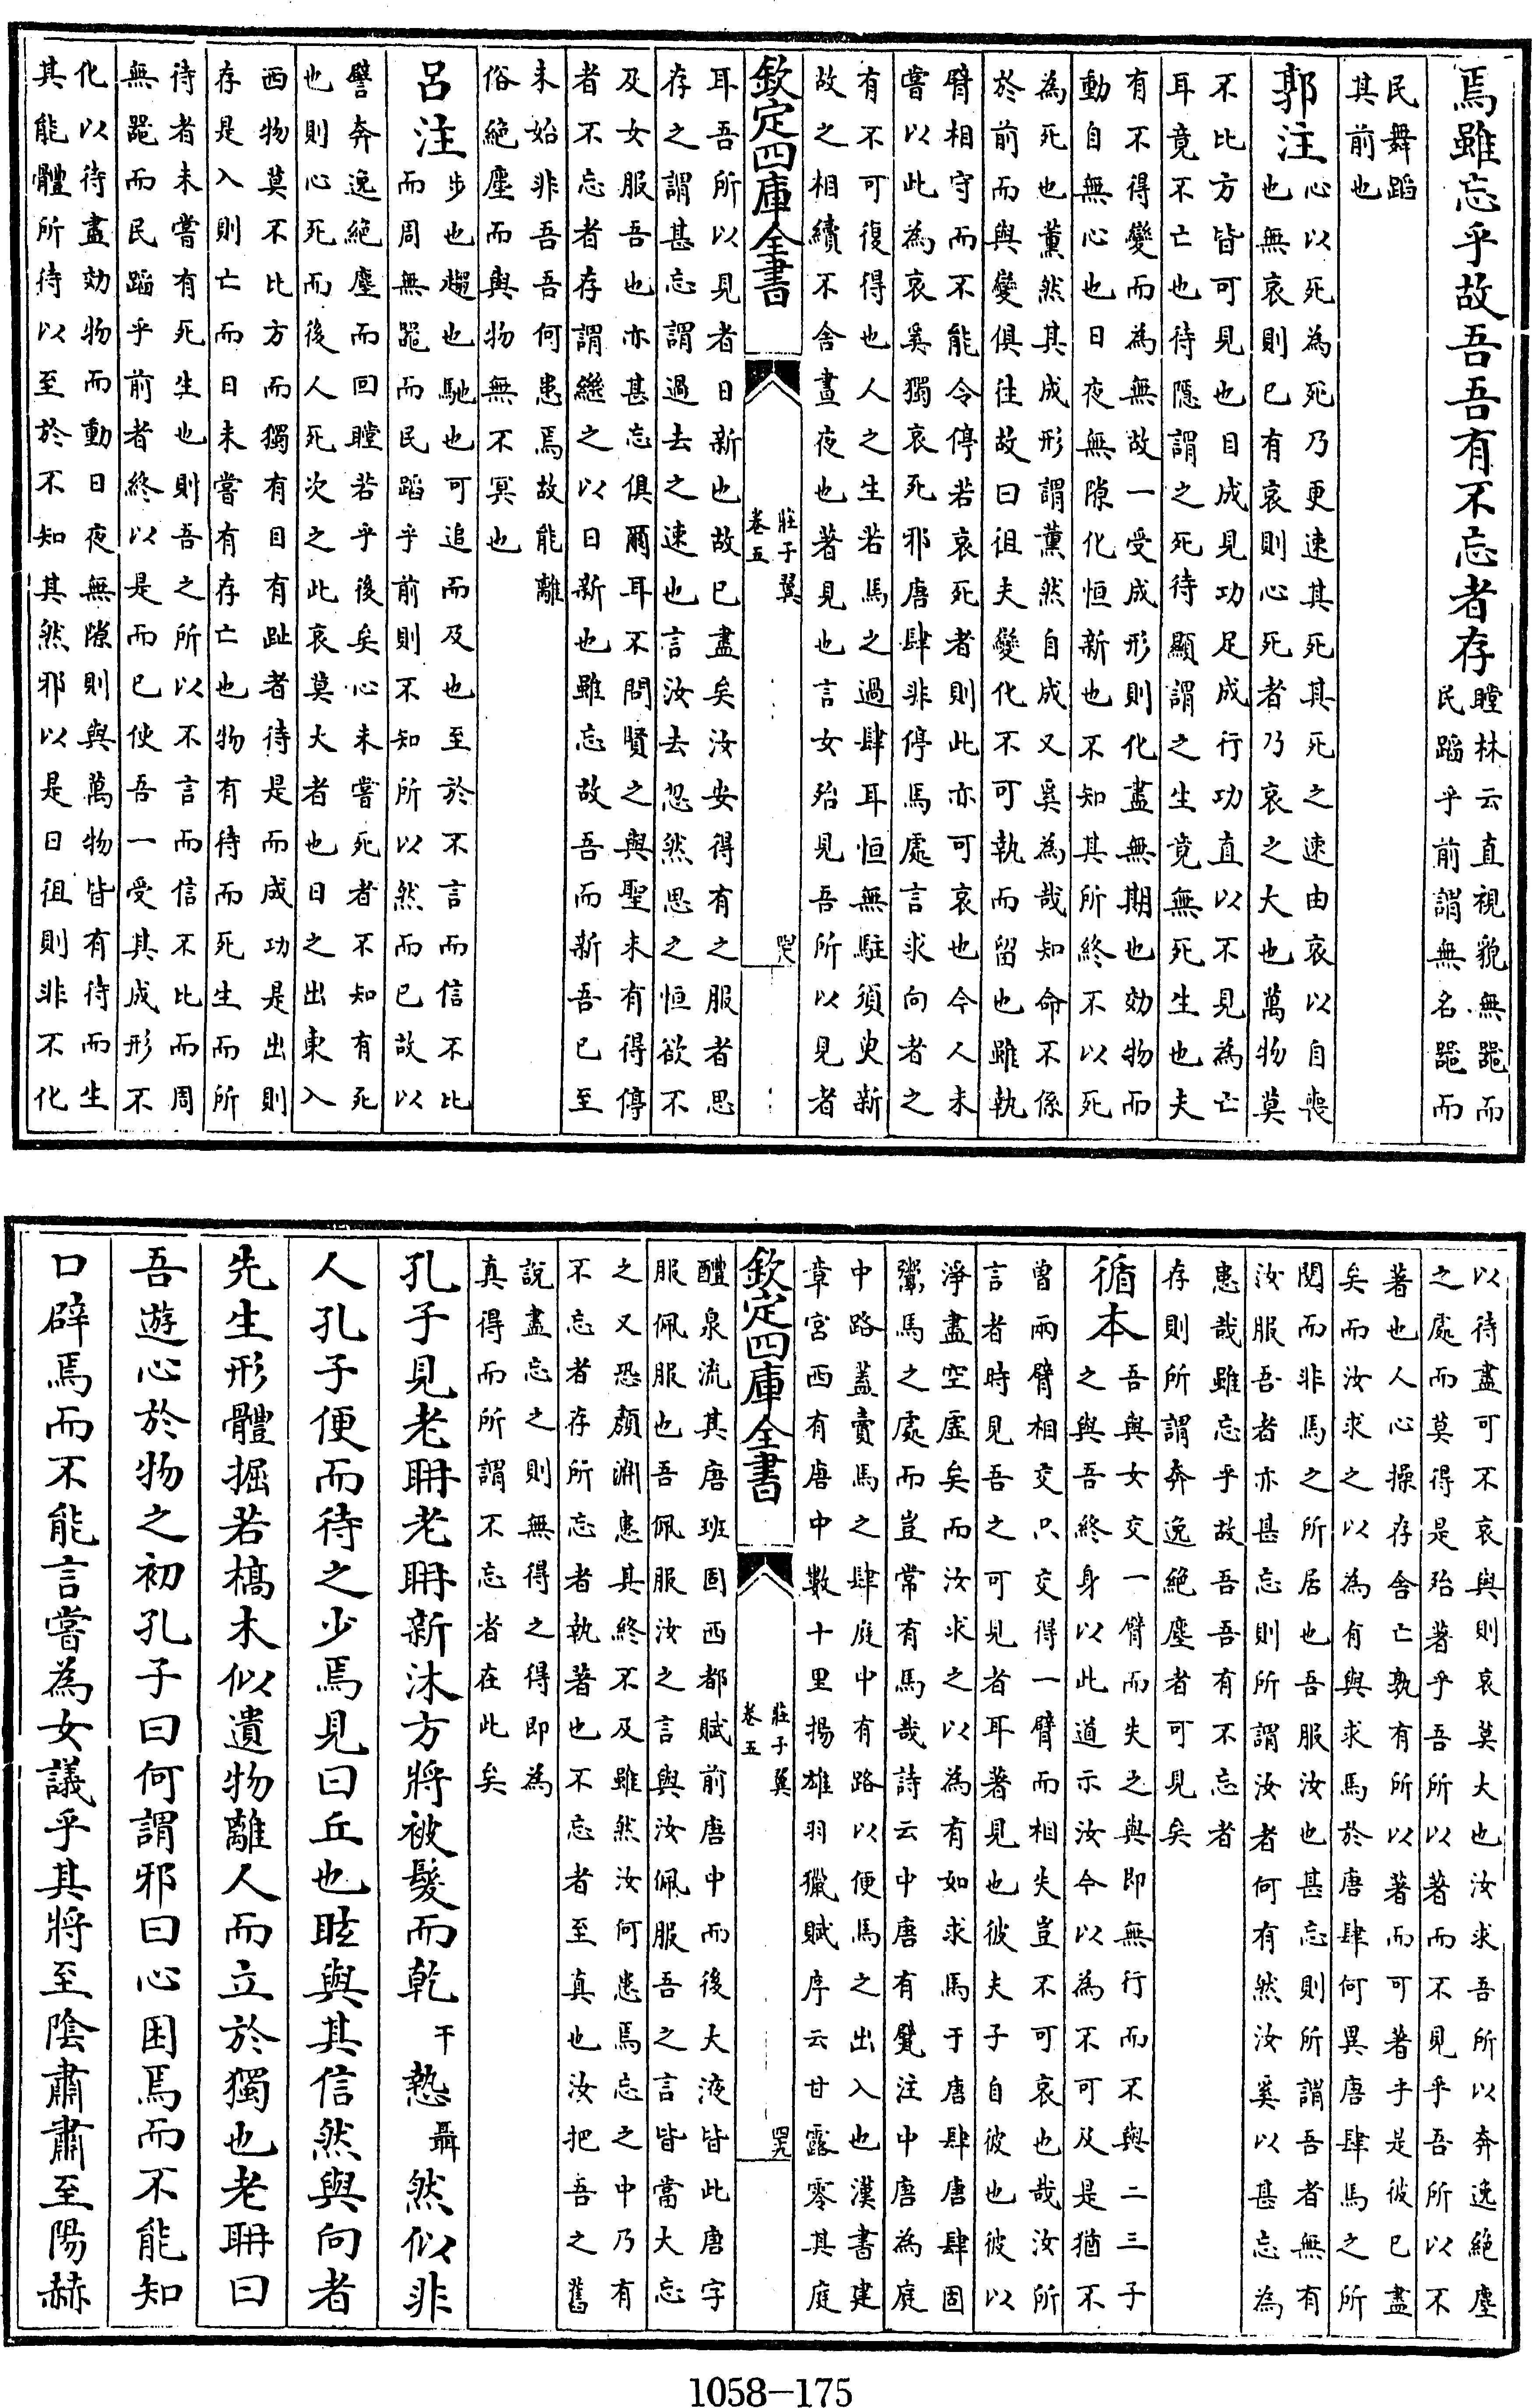 焉雖忘乎故吾吾有不忘者存
瞠林云直視貌無噐而
民蹈乎前謂無名噐而
民舞蹈
其前也
郭注
心以死為死乃更速其死其死之速由哀以自喪
也無哀則已有哀則心死者乃哀之大也萬物莫
不比方皆可見也目成見功足成行功直以不見為亡
耳竟不亡也待隱謂之死待顯謂之生竟無死生也夫
有不得變而為無故一受成形則化盡無期也効物而
動自無心也日夜無隙化恒新也不知其所終不以死
為死也薰然其成形謂薰然自成又奚為哉知命不係
於前而與變俱往故曰徂夫變化不可執而留也雖執
臂相守而不能令停若哀死者則此亦可哀也今人未
嘗以此為哀奚獨哀死邪唐肆非停馬處言求向者之
有不可復得也人之生若馬之過肆耳恒無駐須臾新
故之相續不舍晝夜也著見也言女殆見吾所以見者
欽定四庫全書
莊子翼
卷五
耳吾所以見者日新也故已盡矣汝安得有之服者思
存之謂甚忘謂過去之速也言汝去忽然思之恒欲不
及女服吾也亦甚忘俱爾耳不問賢之與聖未有得停
者不忘者存謂繼之以日新也雖忘故吾而新吾已至
未始非吾吾何患焉故能離
俗絶塵而與物無不冥也
呂注
步也趨也馳也可追而及也至於不言而信不比
而周無噐而民蹈乎前則不知所以然而已故以
譬奔逸絶塵而回瞠若乎後矣心未嘗死者不知有死
也則心死而後人死次之此哀莫大者也日之出東入
西物莫不比方而獨有目有趾者待是而成功是出則
存是入則亡而日未嘗有存亡也物有待而死生而所
待者未嘗有死生也則吾之所以不言而信不比而周
無噐而民蹈乎前者終以是而已使吾一受其成形不
化以待盡効物而動日夜無隙則與萬物皆有待而生
其能體所待以至於不知其然邪以是日徂則非不化
以待盡可不哀與則哀莫大也汝求吾所以奔逸絶塵
之處而莫得是殆著乎吾所以著而不見乎吾所以不
著也人心操存舍亡孰有所以著而可著乎是彼已盡
矣而汝求之以為有與求馬於唐肆何異唐肆馬之所
閱而非馬之所居也吾服汝也甚忘則所謂吾者無有
汝服吾者亦甚忘則所謂汝者何有然汝奚以甚忘為
患哉雖忘乎故吾吾有不忘者
存則所謂奔逸絶塵者可見矣
循本
吾與女交一臂而失之與即無行而不與二三子
之與吾終身以此道示汝今以為不可及是猶不
曾兩臂相交只交得一臂而相失豈不可哀也哉汝所
言者時見吾之可見者耳著見也彼夫子自彼也彼以
淨盡空虛矣而汝求之以為有如求馬于唐肆唐肆固
鬻馬之處而豈常有馬哉詩云中唐有甓注中唐為庭
中路蓋賣馬之肆庭中有路以便馬之出入也漢書建
章宮西有唐中數十里揚雄羽獵賦序云甘露零其庭
欽定四庫全書
莊子翼
卷五
四九
醴泉流其唐班固西都賦前唐中而後大液皆此唐字
服佩服也吾佩服汝之言與汝佩服吾之言皆當大忘
之又恐顏淵患其終不及雖然汝何患焉忘之中乃有
不忘者存所忘者執著也不忘者至真也汝把吾之舊
說盡忘之則無得之得即為
真得而所謂不忘者在此矣
孔子見老聃老聃新沐方將被髮而乾干慹聶然似非
人孔子便而待之少焉見曰丘也眩與其信然與向者
先生形體掘若槁木似遺物離人而立於獨也老聃曰
吾遊心於物之初孔子曰何謂邪曰心困焉而不能知
口辟焉而不能言嘗為女議乎其將至陰肅肅至陽赫
1058-175